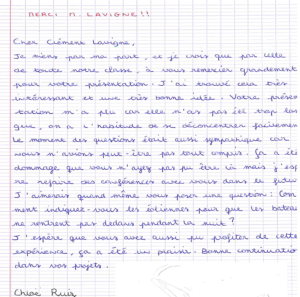 MERCI M. LAVIGNE!!
Cher Clément Lavigne,
Je tiens par ma part, et je crois que par celle
de toute notre classe, à vous remercier grandement
pour votre présentation. J'ai trouvé cela très
intéressant et une très bonne idée. Votre présen
tation m'a plu car elle n'as pas été trop lon
gue, on a l'habitude de se déconcentrer facilement
Le moment des questions était aussi sympathique car
nous n'avions peut-être pas tout compris. Ça a été
dommage que vous n'ayez pas pu être là mais j'esp
re refaire des conférences avec vous dans le futur
J'aimerais quand même vous poser une question: Com
ment indiquez-vous les éoliennes pour que les bateau
ne rentrent pas dedans pendant la nuit?
J'espère que vous avez aussi pu profiter de cette
expérience, ça a été un plaisir. Bonne continuation
dans vos projets.
Chloé Ruiz